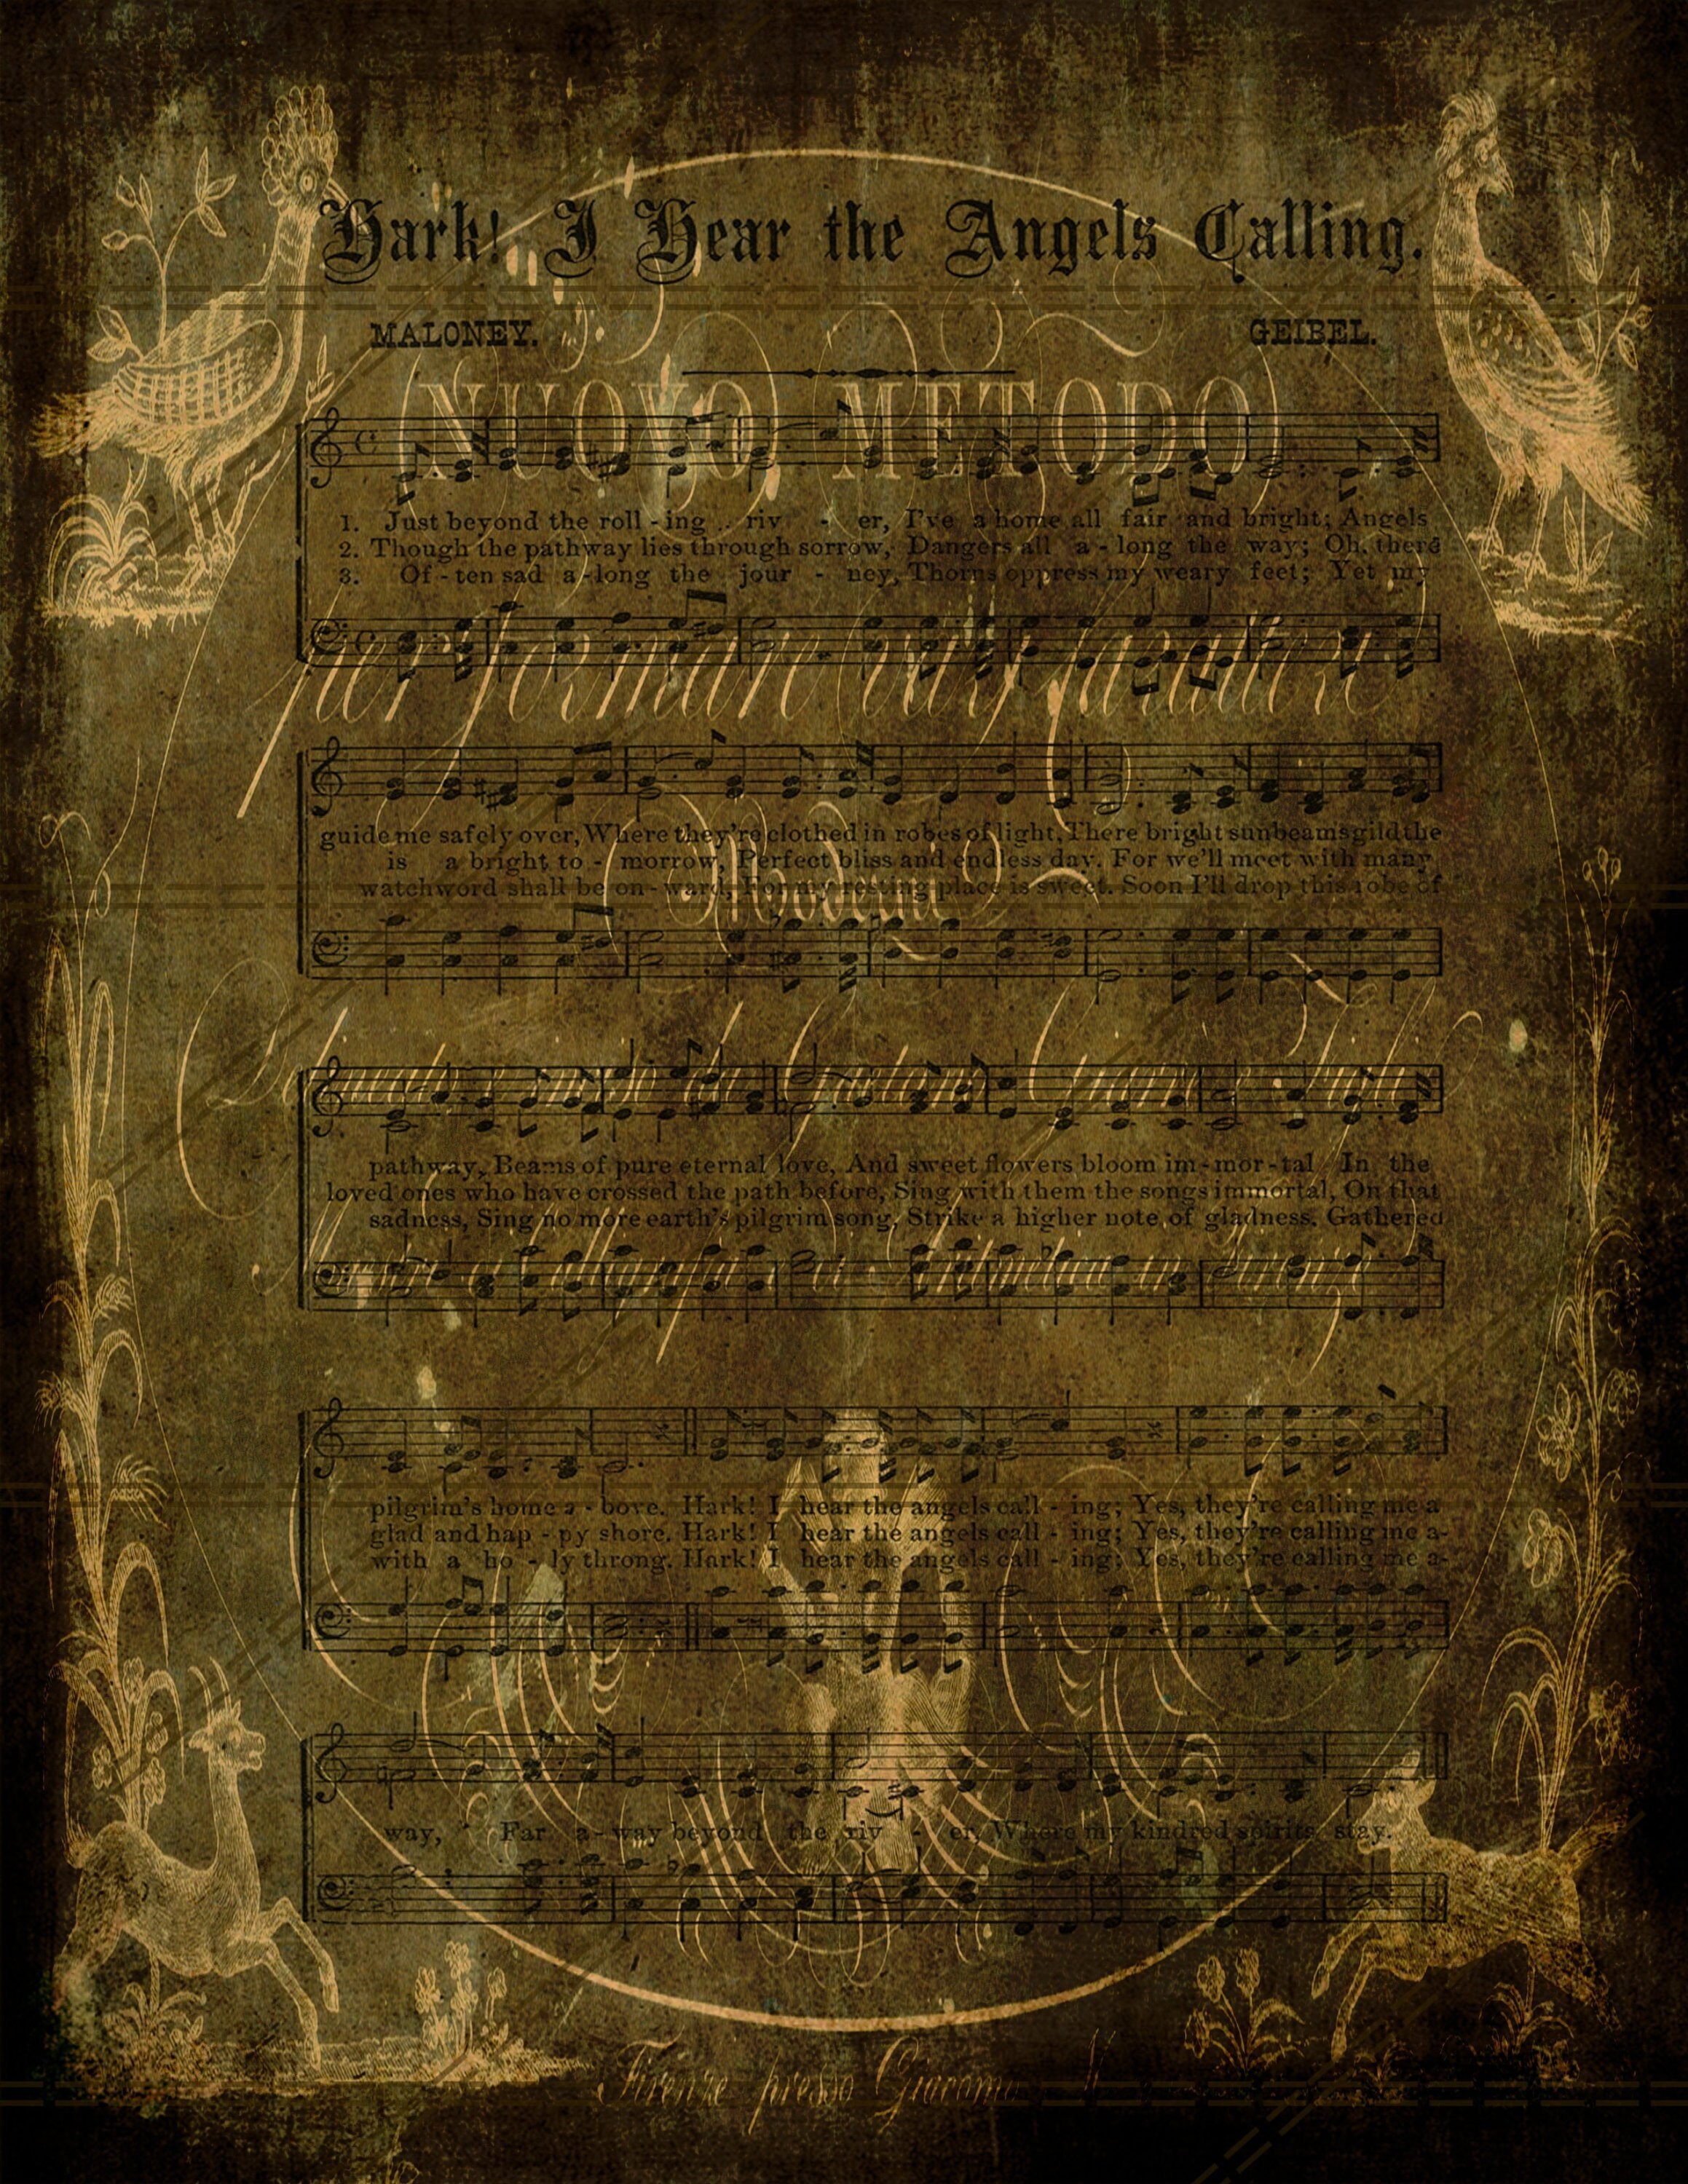 Hark! I Hear the Angels Calling.
MALONEY. GEIBEL.
NUOVO METODO
1. Just beyond the roll - ing riv - er, I've a home all fair and bright; Angels
2. Though the pathway lies through sorrow, Dangers all a - long the way; Oh, there
3. Of - ten sad a - long the jour - ney, Thorns oppress my weary feet; Yet my
per formare
guide me safely over, Where they're clothed in robes of light, There bright sunbeams gild the
is a bright to - morrow, Perfect bliss and endless day. For we'll meet with many
watchword shall be on - ward, For my resting place is sweet. Soon I'll drop this robe of
pathway, Beams of pure eternal love, And sweet flowers bloom im - mor - tal In the
loved ones who have crossed the path before, Sing with them the songs immortal, On that
sadness, Sing no more earth's pilgrim song, Strike a higher note of gladness. Gathered
pilgrim's home a - bove. Hark! I hear the angels call - ing; Yes, they're calling me a
glad and hap - py shore. Hark! I hear the angels call - ing; Yes, they're calling me a-
with a ho - ly throng. Hark! I hear the angels call - ing; Yes, they're calling me a-
way, Far a - way beyond the riv - er, Where my kindred spirits stay.
Firenze presso Giacomo